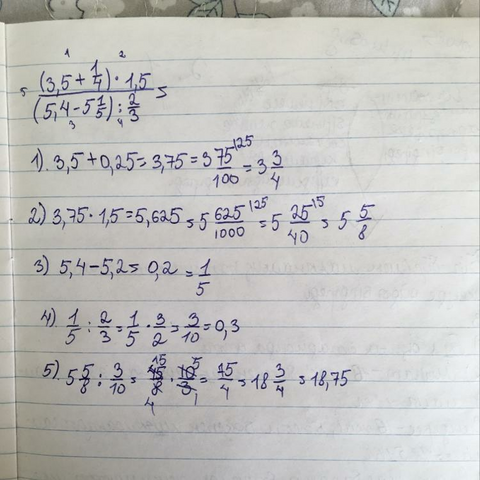 1 2
5 (3,5 + 1/4) · 1,5 =
(5,4 - 5 1/5) : 2/3
3 4
1) 3,5 + 0,25 = 3,75 = 3 75/100 = 3 3/4
2) 3,75 · 1,5 = 5,625 = 5 625/1000 = 5 25/40 = 5 5/8
3) 5,4 - 5,2 = 0,2 = 1/5
4) 1/5 : 2/3 = 1/5 · 3/2 = 3/10 = 0,3
5) 5 5/8 : 3/10 = 45/8 · 10/3 = 75/4 = 18 3/4 = 18,75